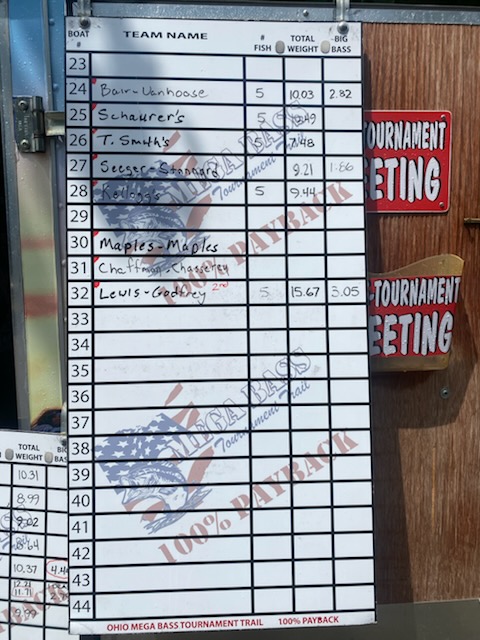 BOAT # TEAM NAME # FISH TOTAL WEIGHT BIG BASS
23
24 Bair-Vanhoose 5 10.03 2.82
25 Schaurer's 5 13.49
26 T. Smith's 5 7.48
27 Seeger-Stannard 9.21 1.86
28 Kellogg's 5 9.44
29
30 Maples-Maples
31
32 Lewis-Godfrey 2nd 5 15.67 3.05
33
34
35
36
37
38
39
40
41
42
43
44
MEGA BASS
Tournament Trail
100% PAYBACK
MEGA BASS
Tournament Trail
100% PAYBACK
OHIO MEGA BASS TOURNAMENT TRAIL 100% PAYBACK
TOURNAMENT
ETING
-TOURNAMENT
EETING
TOTAL WEIGHT
10.31
8.99
9.02
8.64
10.37
12.21
11.71
9.99